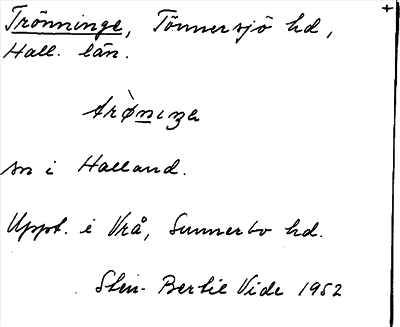 Trönninge, Tönnersjö hd,
Hall. län.
trø̀nıŋa
sn i Halland.
Uppt. i Vrå, Sunnerbo hd.
Sten-Bertil Vide 1952